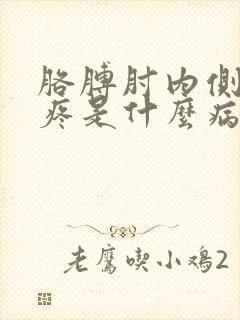 胳膊肘内側
疼是什麼病
老鷹喫小鸡2